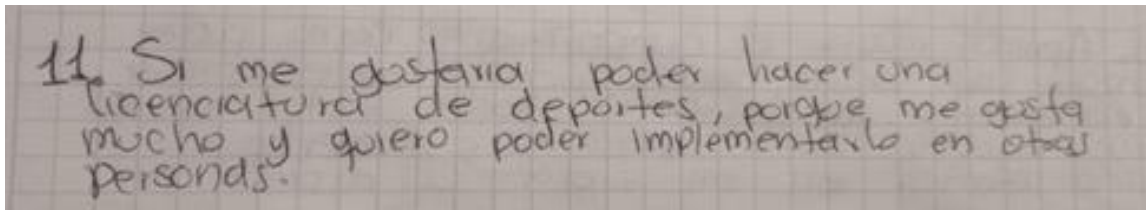 11. Si me gustaria poder hacer una
licenciatura de deportes, porque me gusta
mucho y quiero poder implementarlo en otras
personas.